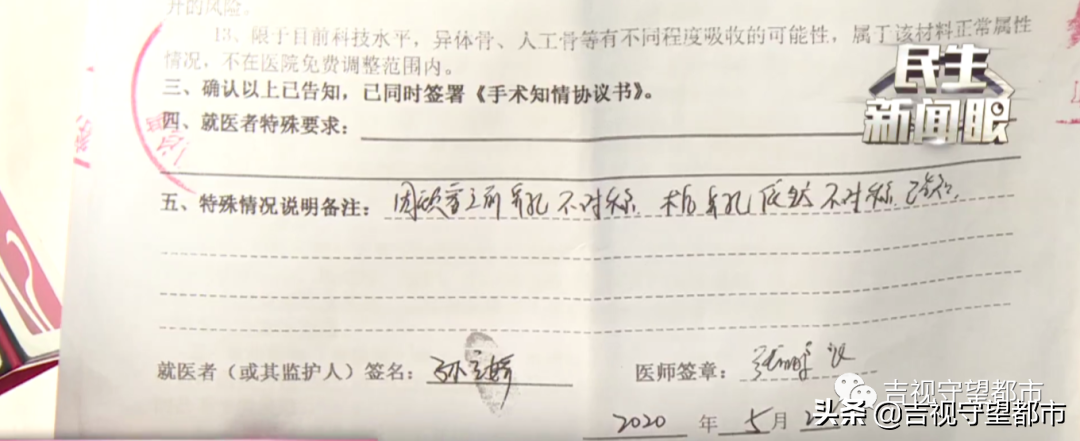 升的风险。
13、限于目前科技水平，异体骨、人工骨等有不同程度吸收的可能性，属于该材料正常属性
情况，不在医院免费调整范围内。
三、确认以上已告知，已同时签署《手术知情协议书》。
四、就医者特殊要求：
五、特殊情况说明备注：因顾客之前鼻孔不对称 术后鼻孔依然不对称 已告知
就医者（或其监护人）签名：孙
医师签章：张
2020 年 5 月 2
民生
新闻眼
吉视守望都市
头条 @吉视守望都市